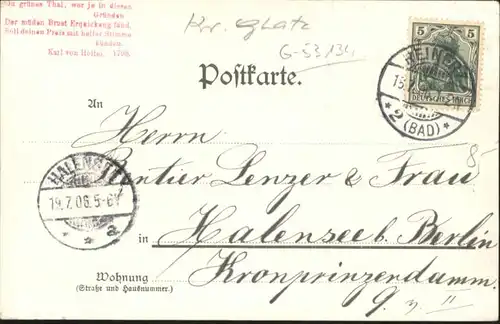 Du grünes Thal, wer je in diesen
Gründen
Der müden Brust Erquickung fand,
Soll deinen Preis mit heller Stimme
künden.
Karl von Holtei. 1799.
Kr. Glatz
G-53134
5 5
DEUTSCHES REICH
REINERZ
2 (BAD)
Postkarte.
An
Herrn
Rentier Lenzer & Frau
8
HALENSEE
19.7.06.5-6N
* * a
in Halensee b. Berlin
Wohnung
(Straße und Hausnummer.)
Kronprinzendamm.
9 II